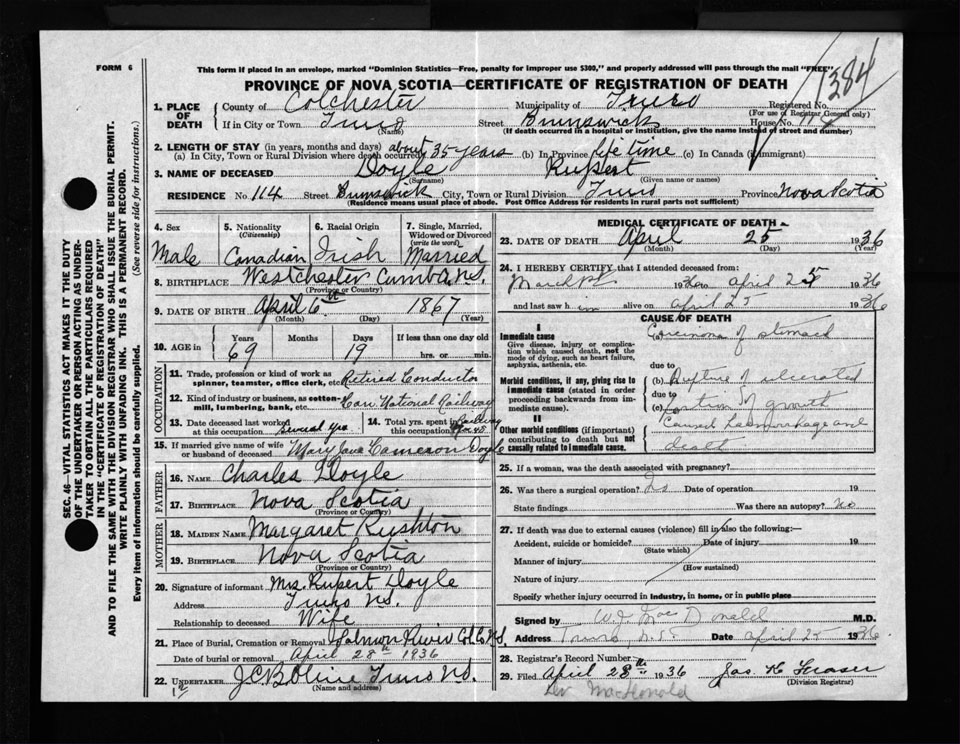 FORM 6
This form if placed in an envelope, marked "Dominion Statistics—Free, penalty for improper use $300," and properly addressed will pass through the mail "FREE"
1384
PROVINCE OF NOVA SCOTIA—CERTIFICATE OF REGISTRATION OF DEATH
1. PLACE OF DEATH
County of Colchester Municipality of Truro Registered No.
(For use of Registrar General only)
If in City or Town Truro Street Brunswick House No. 114
(Name) (If death occurred in a hospital or institution, give the name instead of street and number)
2. LENGTH OF STAY (in years, months and days)
(a) In City, Town or Rural Division where death occurred about 35 years (b) In Province life time (c) In Canada (if immigrant)
3. NAME OF DECEASED Doyle Rupert
(Surname) (Given name or names)
RESIDENCE No. 114 Street Brunswick City, Town or Rural Division Truro Province Nova Scotia
(Residence means usual place of abode. Post Office Address for residents in rural parts not sufficient)
4. Sex Male
5. Nationality (Citizenship) Canadian
6. Racial Origin Irish
7. Single, Married, Widowed or Divorced (write the word) Married
8. BIRTHPLACE Westchester Cumb. N.S.
(Province or Country)
9. DATE OF BIRTH April 6th 1867
(Month) (Day) (Year)
10. AGE in Years 69 Months Days 19 If less than one day old hrs. or min.
OCCUPATION
11. Trade, profession or kind of work as spinner, teamster, office clerk, etc. Retired Conductor
12. Kind of industry or business, as cotton-mill, lumbering, bank, etc. Can. National Railway
13. Date deceased last worked at this occupation Several yrs.
14. Total yrs. spent in this occupation Railway 45
15. If married give name of wife or husband of deceased Mary Jane Cameron Doyle
FATHER
16. NAME Charles Doyle
17. BIRTHPLACE Nova Scotia
(Province or Country)
MOTHER
18. MAIDEN NAME Margaret Rushton
19. BIRTHPLACE Nova Scotia
(Province or Country)
20. Signature of informant Mrs. Rupert Doyle
Address Truro N.S.
Relationship to deceased Wife
21. Place of Burial, Cremation or Removal Salmon River Col. Co. N.S.
Date of burial or removal April 28th 1936
22. UNDERTAKER J.C.B. Olive Truro N.S.
(Name and address)
MEDICAL CERTIFICATE OF DEATH
23. DATE OF DEATH April 25 1936
(Month) (Day) (Year)
24. I HEREBY CERTIFY that I attended deceased from:
March 1st 1936 to april 25 1936
and last saw him alive on april 25 1936
CAUSE OF DEATH
I
Immediate cause
Give disease, injury or complication which caused death, not the mode of dying, such as heart failure, asphyxia, asthenia, etc.
(a) Carcinoma of stomach
due to
Morbid conditions, if any, giving rise to immediate cause (stated in order proceeding backwards from immediate cause).
(b) Rupture of ulcerated
due to
(c) portion of growth
II
Other morbid conditions (if important) contributing to death but not causally related to immediate cause.
caused haemorrhage and
death
25. If a woman, was the death associated with pregnancy?
26. Was there a surgical operation? No Date of operation 19
State findings Was there an autopsy? No
27. If death was due to external causes (violence) fill in also the following:—
Accident, suicide or homicide? Date of injury 19
(State which)
Manner of injury
(How sustained)
Nature of injury
Specify whether injury occurred in industry, in home, or in public place
Signed by W.J. MacDonald M.D.
Address Truro N.S. Date april 25 1936
28. Registrar's Record Number
29. Filed April 28th 1936 Jas H Fraser
(Division Registrar)
Dr. MacDonald
SEC. 46—VITAL STATISTICS ACT MAKES IT THE DUTY
OF THE UNDERTAKER OR PERSON ACTING AS UNDER-
TAKER TO OBTAIN ALL THE PARTICULARS REQUIRED
IN THE "CERTIFICATE OF REGISTRATION OF DEATH"
AND TO FILE THE SAME WITH THE DIVISION REGISTRAR WHO SHALL ISSUE THE BURIAL PERMIT.
WRITE PLAINLY WITH UNFADING INK. THIS IS A PERMANENT RECORD.
Every item of information should be carefully supplied. (See reverse side for instructions.)